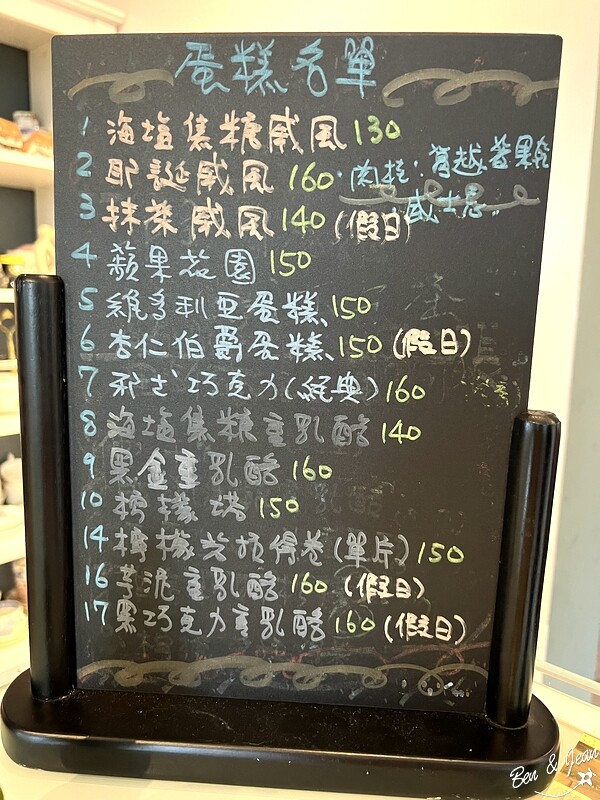 蛋糕名單
1 海塩焦糖威風 130
2 耶誕威風 160 · 肉桂·蔓越莓果乾
威士忌
3 抹茶威風 140 (假日)
4 蘋果花園 150
5 維多利亞蛋糕 150
6 杏仁伯爵蛋糕 150 (假日)
7 邪惡巧克力(經典) 160
8 海塩焦糖重乳酪 140
9 黑金重乳酪 160
10 檸檬塔 150
14 檸檬米抗得卷(單片) 150
16 芋泥重乳酪 160 (假日)
17 黑巧克力重乳酪 160 (假日)
Ben & Jean